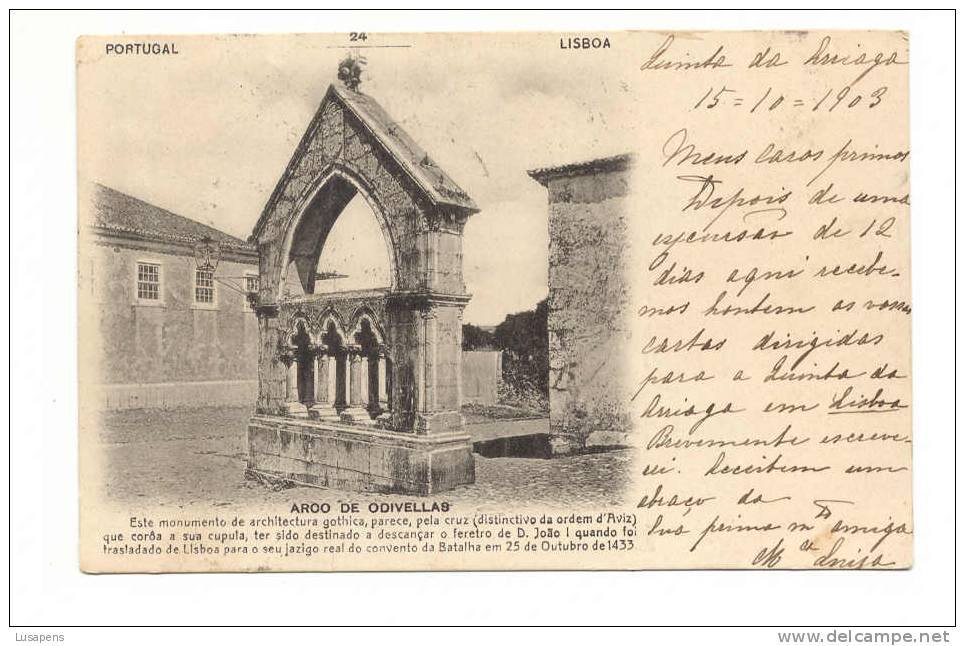 PORTUGAL
24
LISBOA
Quinta da Arriaga
15=10=1903
Meus caros primos
Depois de uma
excursão de 12
dias aqui recebe-
mos hontem as vossas
cartas dirigidas
para a Quinta da
Arriaga em Lisboa
Brevemente escreve-
rei. Recebem um
abraço da
Sua prima mto amiga
Ma Luisa
ARCO DE ODIVELLAS
Este monumento de architectura gothica, parece, pela cruz (distinctivo da ordem d'Aviz)
que corôa a sua cupula, ter sido destinado a descançar o feretro de D. João I quando foi
trasladado de Lisboa para o seu jazigo real do convento da Batalha em 25 de Outubro de 1433
Lusapens
www.delcampe.net